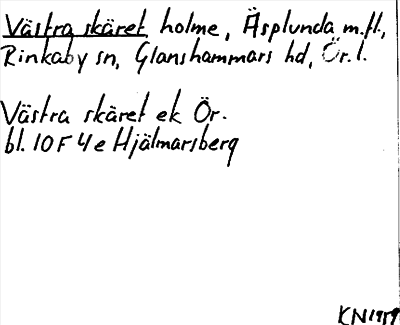 Västra skäret, holme, Äsplunda m.fl.,
Rinkaby sn, Glanshammars hd, Ör. l.
Västra skäret ek Ör.
bl. 10 F 4 e Hjälmarsberg
KN 1959